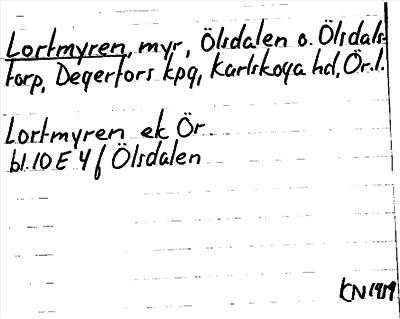 Lortmyren, myr, Ölsdalen o. Ölsdals-
torp, Degerfors kpg, Karlskoga hd, Ör. l.
Lortmyren ek Ör
bl. 10 E 4 f Ölsdalen
KN 1959